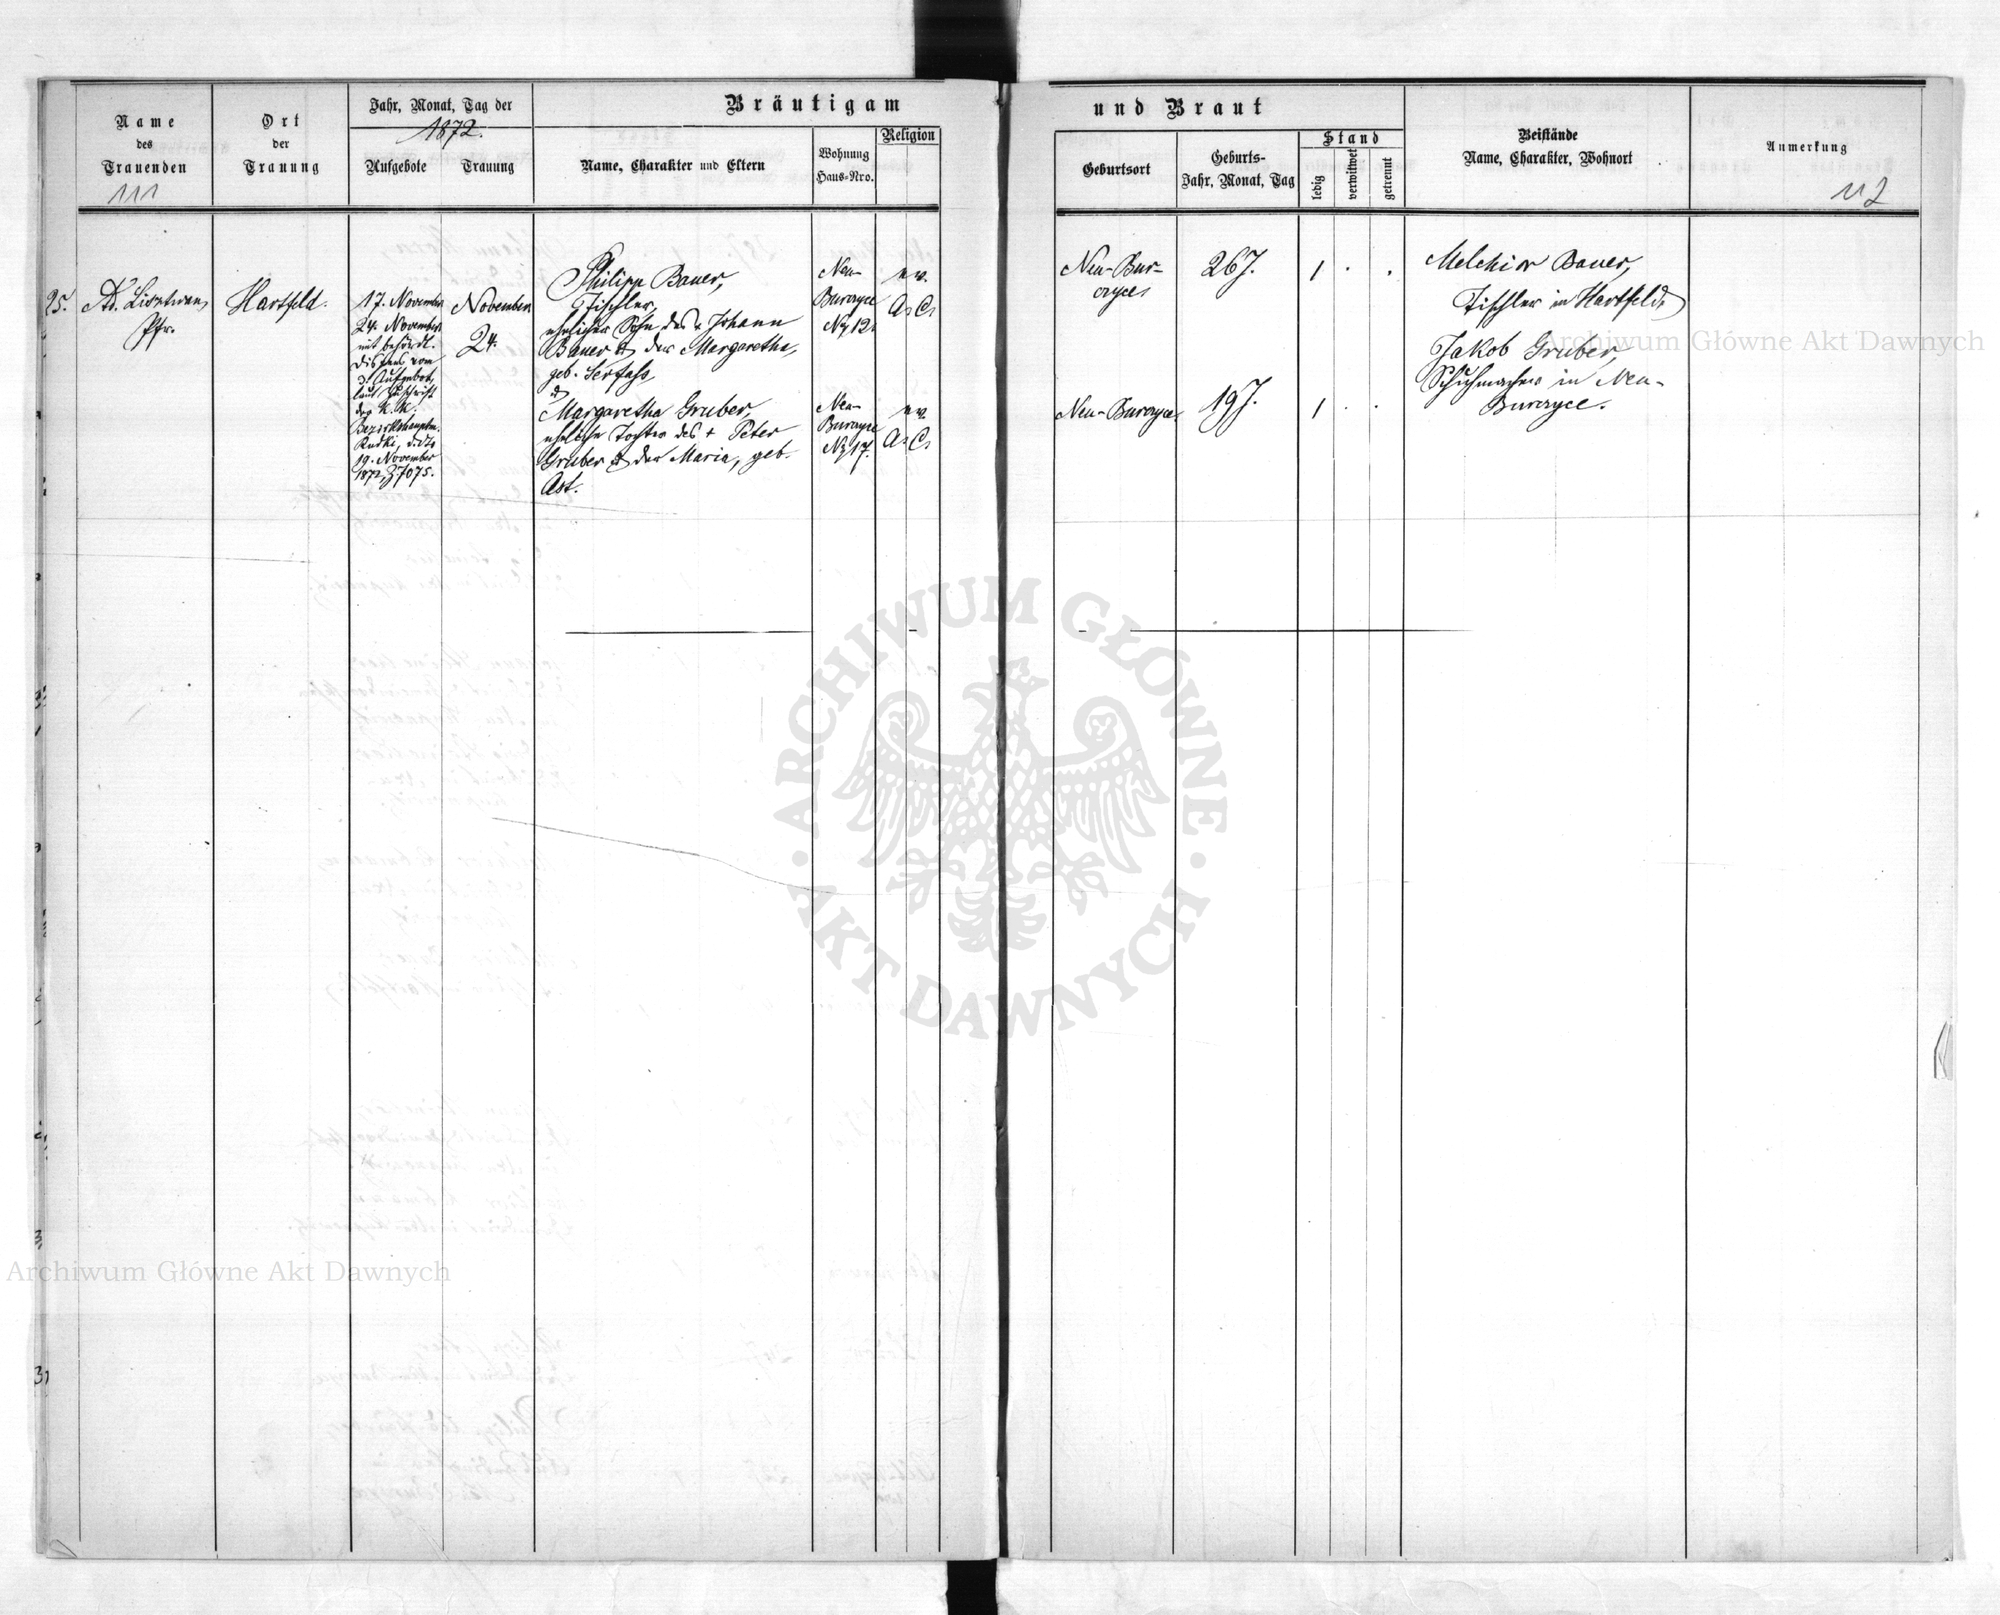 Name
des
Trauenden
111
Ort
der
Trauung
Jahr, Monat, Tag der
1872.
Aufgebote
Trauung
Bräutigam
Name, Charakter und Eltern
Wohnung
Haus-Nro.
Religion
und Braut
Geburtsort
Geburts-
Jahr, Monat, Tag
Stand
ledig
verwitwet
getrennt
Beistände
Name, Charakter, Wohnort
Anmerkung
112
25.
Pfr.
Hartfeld.
17. November
24. November
mit behördl.
Dispens vom
3. Aufgebot,
laut Zuschrift
der K. K.
Bezirkshauptm.
Rudki, d. dto
19. November
1872, Z. 7075.
November
24.
Philipp Bauer,
Tischler,
ehelicher Sohn des + Johann
Bauer & der Margaretha,
geb. Serfass
&
Margaretha Gruber,
eheliche Tochter des + Peter
Gruber & der Maria, geb.
Ast.
Neu-
Burczyce
No 12.
Neu-
Burczyce
No 17.
ev.
A. C.
ev.
A. C.
Neu-Bur-
czyce,
Neu-Burczyce,
26 J.
19 J.
1 . .
1 . .
Melchior Bauer,
Tischler in Hartfeld,
Jakob Gruber,
Schuhmacher in Neu-
Burczyce.
Archiwum Główne Akt Dawnych
ARCHIWUM GŁÓWNE · AKT DAWNYCH ·
Archiwum Główne Akt Dawnych